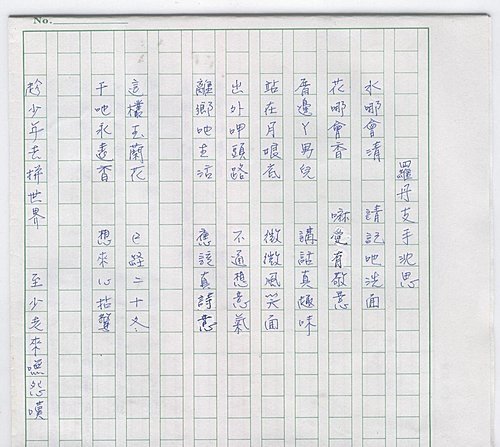 No.
羅丹支手沈思
水哪會清 請記吔洗面
花哪會香 嘛覺有敬意
厝邊丫男兒 講話真趣味
站在月娘底 微微風笑面
出外呷頭路 不通想意氣
離鄉吔生活 應該真詩意
這欉玉蘭花 已經二十冬
干吔永遠香 想來心
趁少年去拼世界 至少老來嘸怨嘆